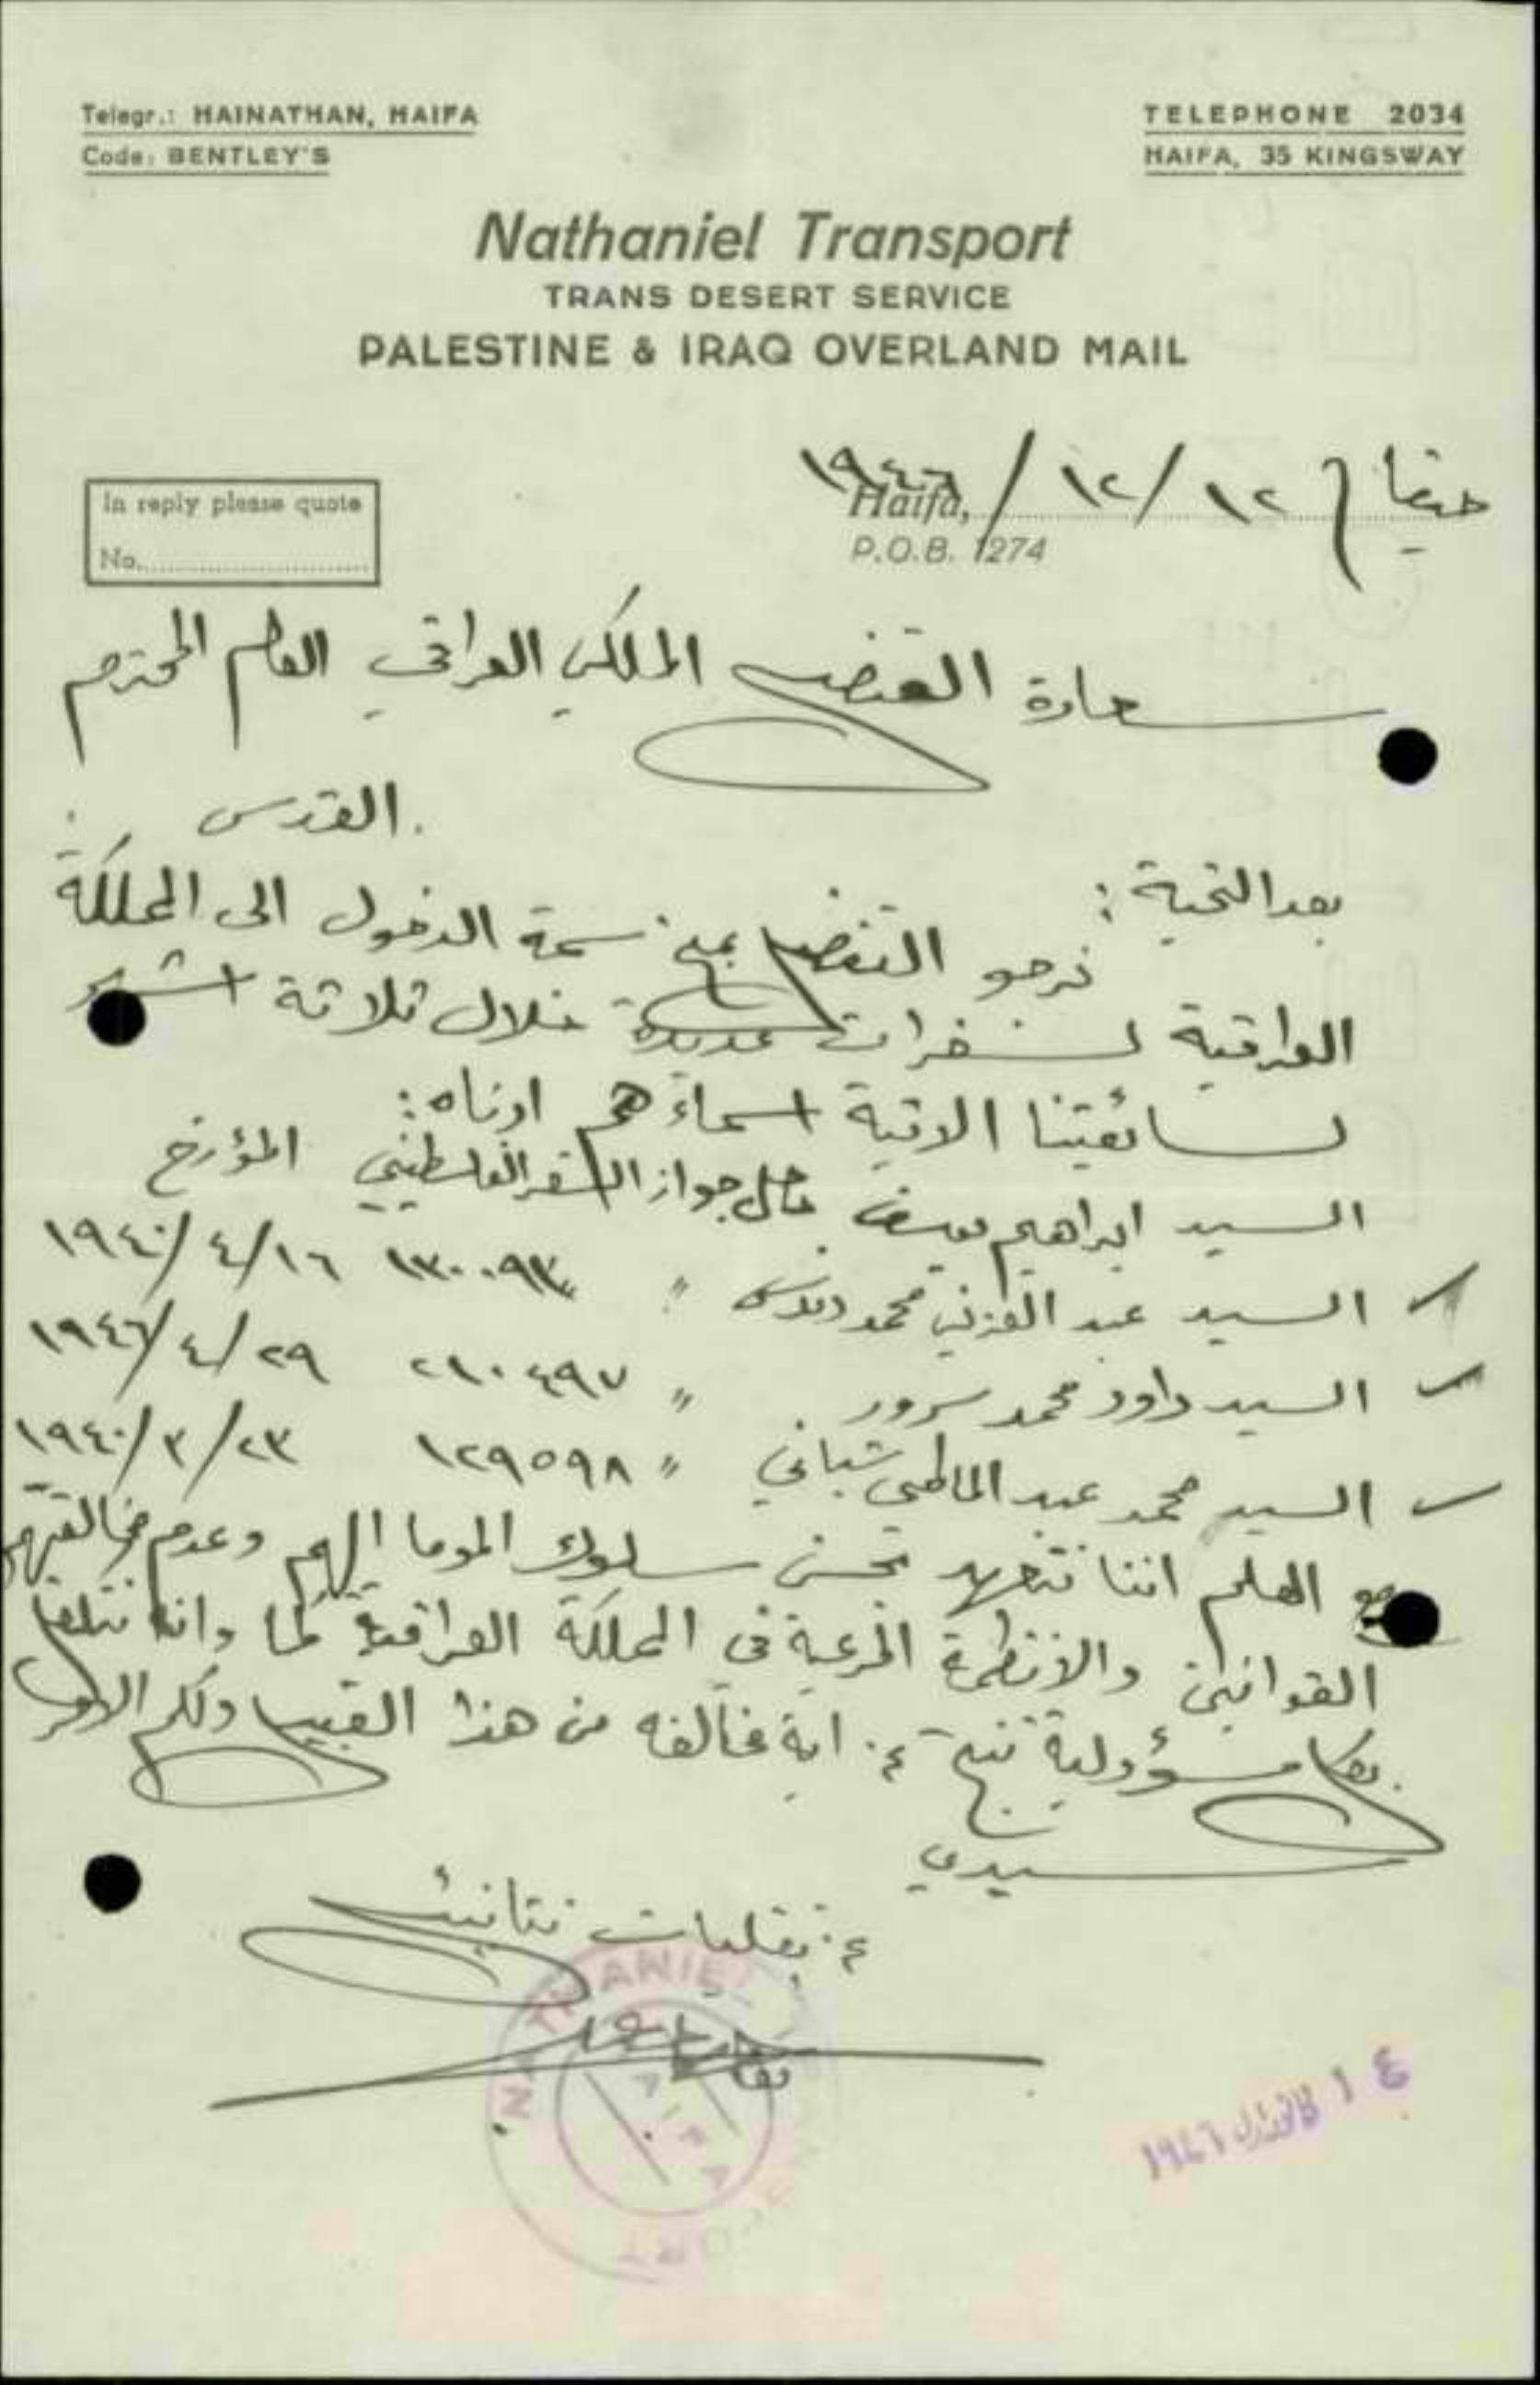 Telegr.: HAINATHAN, HAIFA
Code: BENTLEY'S
TELEPHONE 2034
HAIFA, 35 KINGSWAY
Nathaniel Transport
TRANS DESERT SERVICE
PALESTINE & IRAQ OVERLAND MAIL
In reply please quote
No.
Haifa,
P.O.B. 1274
حيفا في ١٢/١٢/١٩٤٦
سعادة القنصل الملكي العراقي العام المحترم
القدس
بعد التحية:
نرجو التفضل بمنح سمة الدخول الى المملكة
العراقية لسفرات عديدة خلال ثلاثة اشهر
لسائقينا الاتية اسماءهم ادناه:
السيد ابراهيم يوسف حامل جواز السفر الفلسطيني المؤرخ
السيد عبد محمد " ١٣٠٠٩٣ ١٦/٤/١٩٤٠
السيد داود محمد سرور " ٢١٠٤٩٧ ٢٩/٤/١٩٤٦
السيد محمد عبد " ١٢٩٥٩٨ ٢٣/٣/١٩٤٠
مع العلم اننا نتعهد بحسن سلوك الموما اليهم وعدم مخالفتهم
القوانين والانظمة المرعية في المملكة العراقية كما واننا
بكل مسؤولية تنتج عن اية مخالفه من هذا القبيل ولكم الامر
سيدي
عن نقليات نتانئيل
NATHANIEL TRANSPORT
HAIFA
١٤ ١٩٤٦